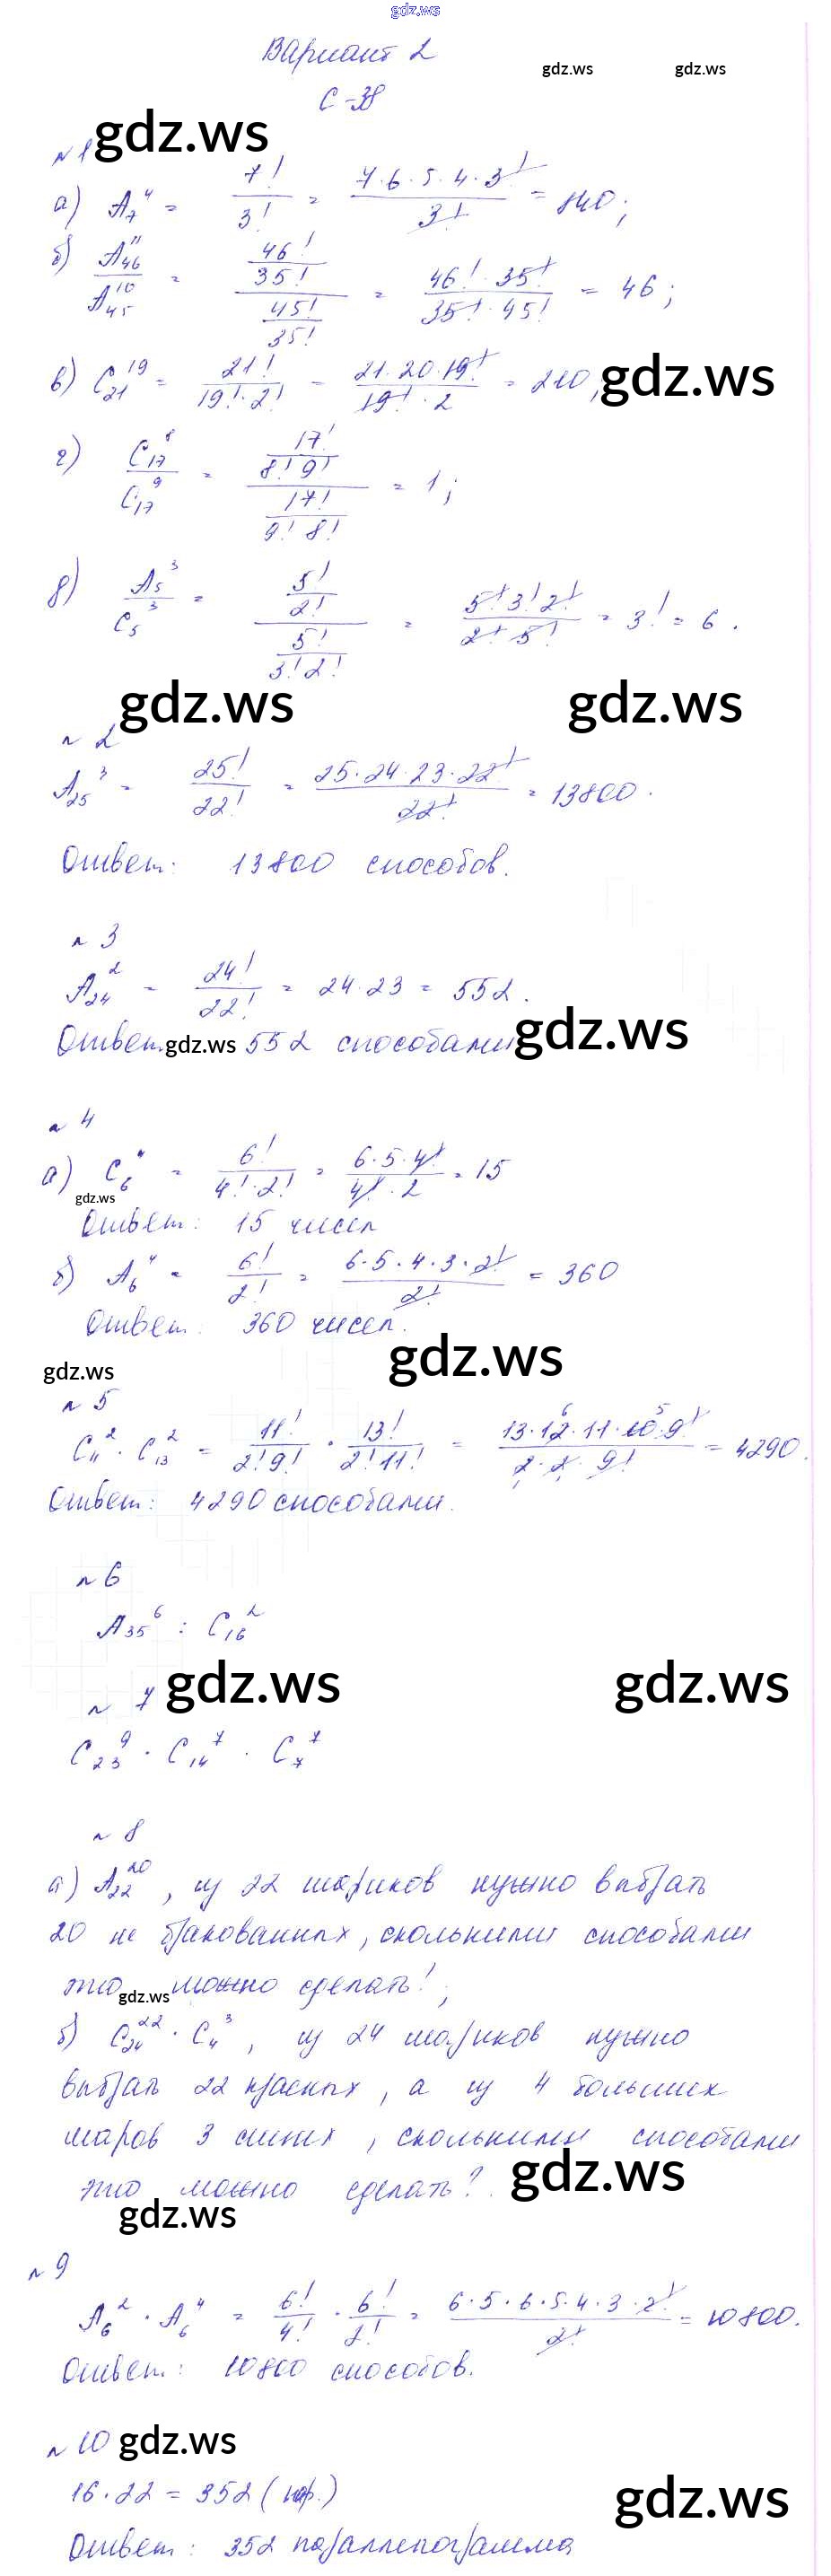 gdz.ws
Вариант 2
gdz.ws gdz.ws
С-38
№1 gdz.ws
а) A₇⁴ = 7!/3! = 7·6·5·4·3!/3! = 840;
б) A₄₆¹¹/A₄₅¹⁰ = (46!/35!)/(45!/35!) = 46!·35!/35!·45! = 46;
в) C₂₁¹⁹ = 21!/19!·2! = 21·20·19!/19!·2 = 210; gdz.ws
г) C₁₇⁸/C₁₇⁹ = (17!/8!9!)/(17!/9!8!) = 1;
д) A₅³/C₅³ = (5!/2!)/(5!/3!2!) = 5!3!2!/2!5! = 3! = 6.
gdz.ws gdz.ws
№2
A₂₅³ = 25!/22! = 25·24·23·22!/22! = 13800.
Ответ: 13800 способов.
№3
A₂₄² = 24!/22! = 24·23 = 552.
Ответ gdz.ws 552 способами gdz.ws
№4
а) C₆⁴ = 6!/4!·2! = 6·5·4!/4!·2 = 15
gdz.ws
Ответ: 15 чисел
б) A₆⁴ = 6!/2! = 6·5·4·3·2!/2! = 360
Ответ: 360 чисел.
gdz.ws gdz.ws
№5
C₁₁²·C₁₃² = 11!/2!9! · 13!/2!11! = 13·12·11·10·9!/2·2·9! = 4290.
Ответ: 4290 способами.
№6
A₃₅⁶ : C₁₆²
№7 gdz.ws gdz.ws
C₂₃⁹ · C₁₄⁷ · C₇⁷
№8
а) A₂₂²⁰, из 22 шариков нужно выбрать
20 не бракованных, сколькими способами
это gdz.ws можно сделать!;
б) C₂₄²²·C₄³, из 24 шариков нужно
выбрать 22 красных, а из 4 больших
шаров 3 синих, сколькими способами
это можно сделать?. gdz.ws
gdz.ws
№9
A₆²·A₆⁴ = 6!/4! · 6!/2! = 6·5·6·5·4·3·2!/2! = 10800.
Ответ: 10800 способов.
№10 gdz.ws
16·22 = 352 (пар.)
gdz.ws
Ответ: 352 параллелограмма